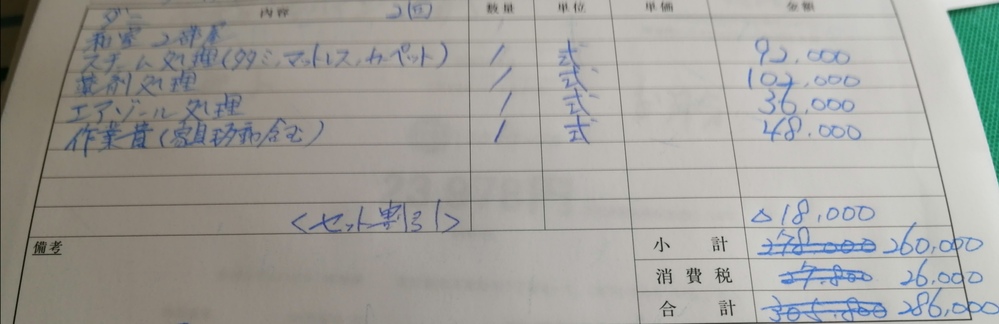 ダニ 内容 2回 数量 単位 単価 金額
和室2部屋
スチーム処理(タタミ,マットレス,カーペット) 1 式 92,000
薬剤処理 1 式 102,000
エアゾール処理 1 式 36,000
作業費(家具移動含む) 1 式 48,000
<セット割引> △18,000
備考
小計 278,000 260,000
消費税 27,800 26,000
合計 305,800 286,000